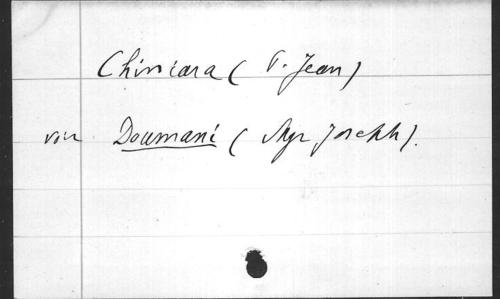 Chiniara (P. Jean)
voir Doumani (Mgr Joseph).